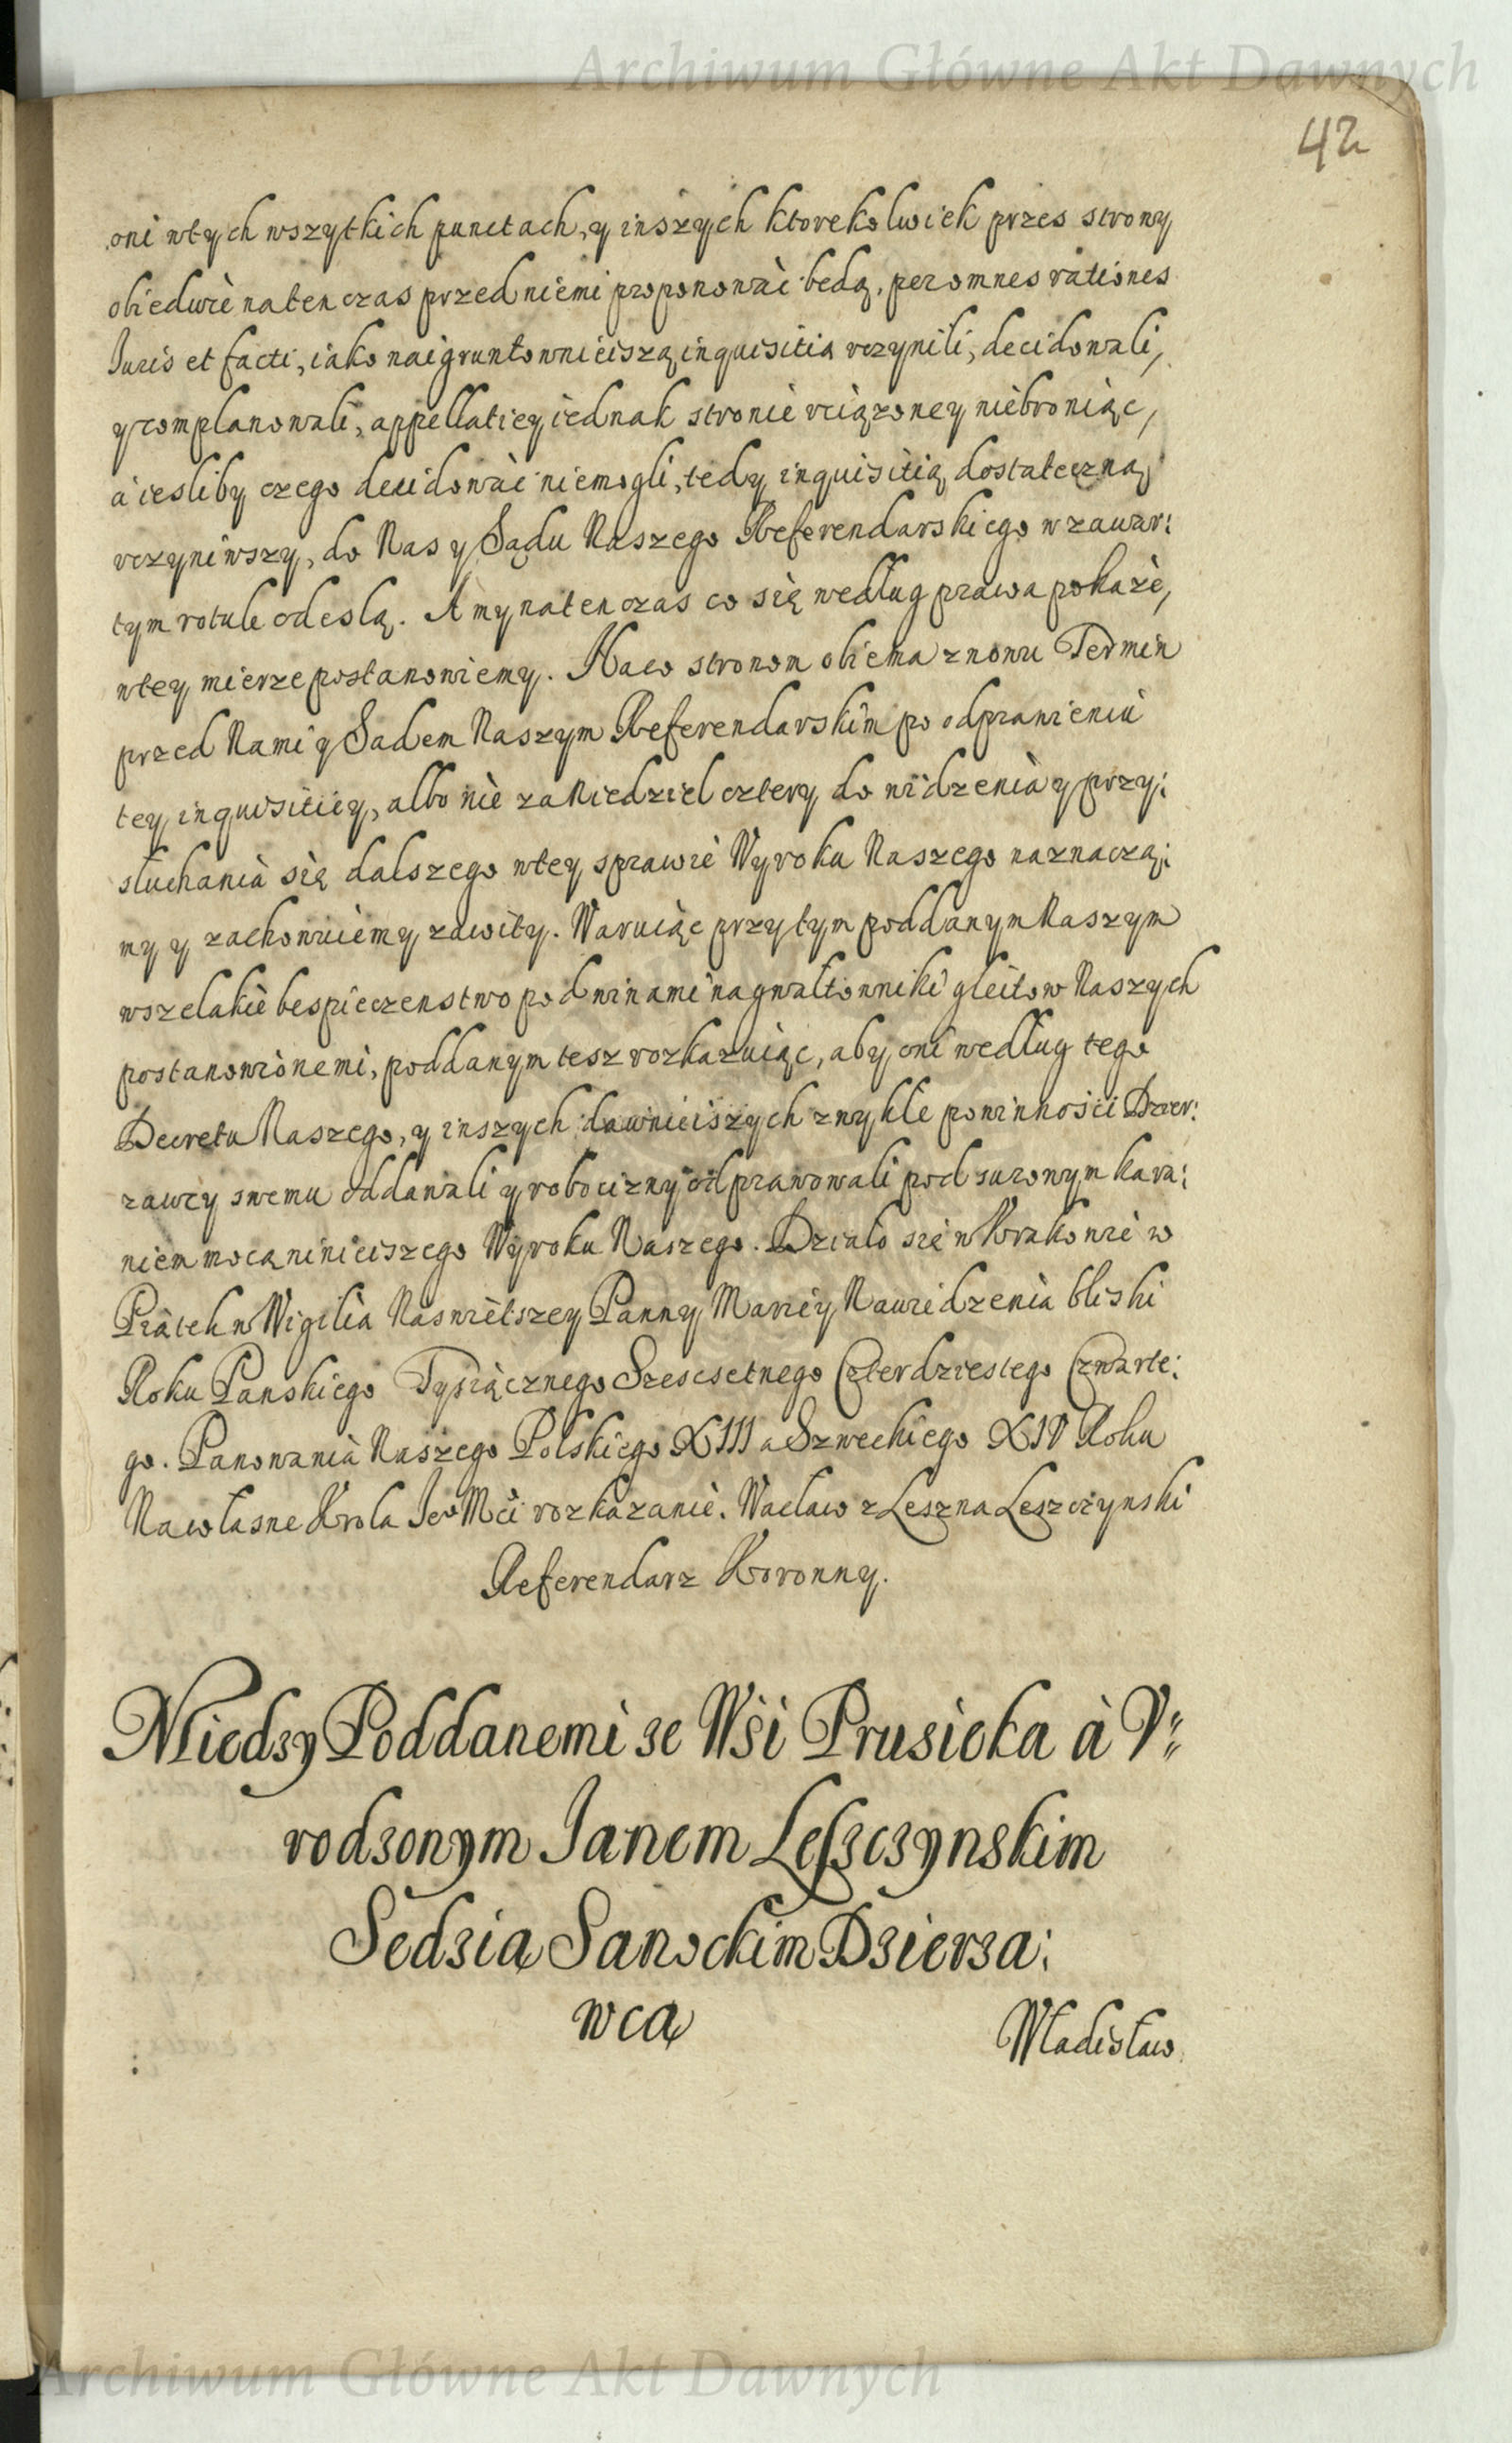 Archiwum Główne Akt Dawnych
42
oni wtych wszytkich punctach, y inszych ktorekolwiek przes strony
obiedwie natenczas przed niemi proponowac będą, per omnes rationes
Iuris et facti, iako naigruntownieiszą inquisitia vczynili, decidowali,
y complanowali, appellatiey iednak stronie vciązoney niebroniąc,
a iesliby czego decidowac niemogli, tedy inquisitią dostateczną
vczyniwszy, do Nas y Sądu Naszego Referendarskiego w zawar:
tym rotule odeslą. A my natenczas co się według prawa pokaże,
wtey mierze postanowiemy. Naco stronom obiema znowu Termin
przed Nami y Sadem Naszym Referendarskim po odprawieniu
tey inquisitiey, albo nie za Niedziel cztery do widzenia y przy:
słuchania się dalszego wtey sprawie Wyroku Naszego naznaczą:
my y zachowuiemy zawity. Waruiąc przytym poddanym Naszym
wszelakie bespieczenstwo pod winami na gwałtowniki gleitow Naszych
postanowionemi, poddanym tesz rozkazuiąc, aby oni według tego
Decretu Naszego, y inszych dawnieiszych zwykłe powinności Dzier:
zawcy swemu oddawali y robocizny odprawowali pod surowym kara:
niem mocą ninieiszego Wyroku Naszego. Działo się w Krakowie w
Piątek w Wigilią Naswiętszey Panny Mariey Nawiedzenia bliski
Roku Panskiego Tysiącznego Szescsetnego Czterdziestego Czwarte:
go. Panowania Naszego Polskiego XIII a Szweckiego XIV Roku
Na własne Krola Jeo Mci rozkazanie. Wacław z Leszna Leszczynski
Referendarz Koronny.
Miedzy Poddanemi ze Wsi Prusieka à V⸗
rodzonym Janem Leszczynskim
Sedzią Sanockim Dzierza:
wcą
Władisław
Archiwum Główne Akt Dawnych